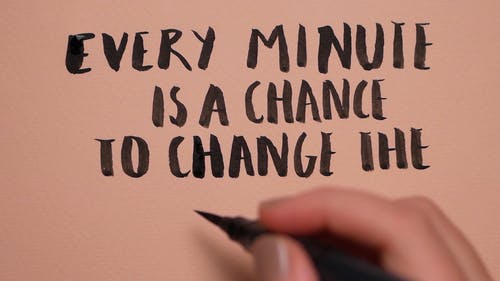 EVERY MINUTE
IS A CHANCE
TO CHANGE THE